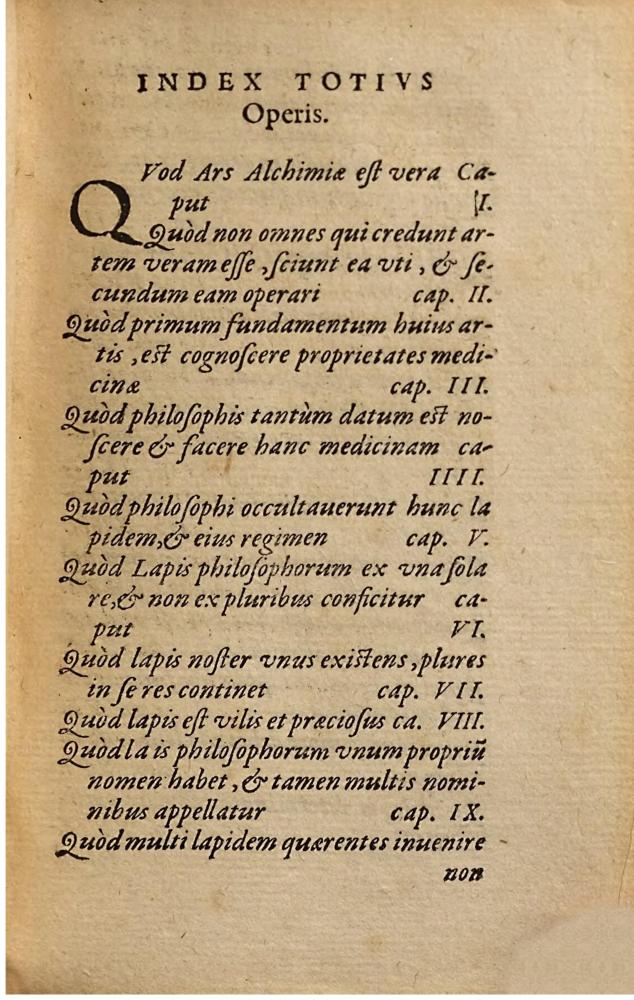 INDEX TOTIVS
Operis.
QVod Ars Alchimiæ eſt vera Ca-
put I.
Quòd non omnes qui credunt ar-
tem veram eſſe, ſciunt ea vti, & ſe-
cundum eam operari cap. II.
Quòd primum fundamentum huius ar-
tis, eſt cognoſcere proprietates medi-
cinæ cap. III.
Quòd philoſophis tantùm datum eſt no-
ſcere & facere hanc medicinam ca-
put IIII.
Quòd philoſophi occultauerunt hunc la
pidem, & eius regimen cap. V.
Quòd Lapis philoſophorum ex vna ſola
re, & non ex pluribus conficitur ca-
put VI.
Quòd lapis noſter vnus exiſtens, plures
in ſe res continet cap. VII.
Quòd lapis eſt vilis et præcioſus ca. VIII.
Quòd la is philoſophorum vnum propriū
nomen habet, & tamen multis nomi-
nibus appellatur cap. IX.
Quòd multi lapidem quærentes inuenire
non